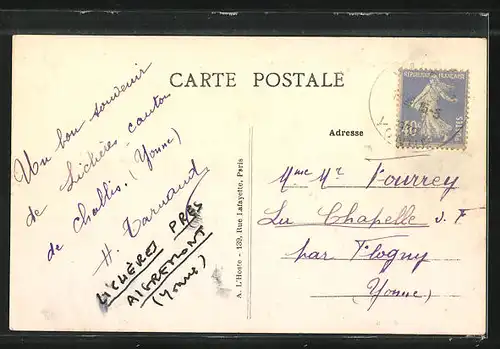 CARTE POSTALE
Un bon souvenir
de Lichères canton
de Chablis. (Yonne)
H. Tarnaud
LICHÈRES PRÈS
AIGREMONT
(Yonne)
A. L'Hoste - 139, Rue Lafayette, Paris
REPUBLIQUE FRANÇAISE
POSTES
Adresse
Mme Mr Fourrey
La Chapelle
par Flogny
(Yonne)